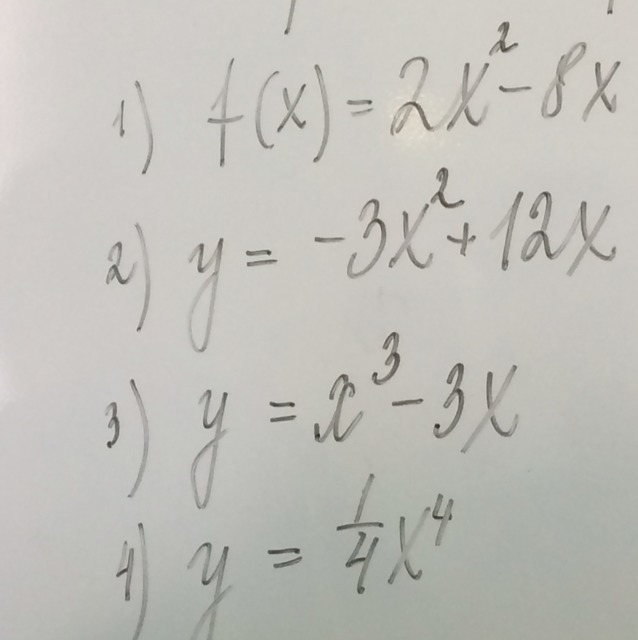 1) f(x) = 2x² - 8x
2) y = -3x² + 12x
3) y = x³ - 3x
4) y = 1/4 x⁴